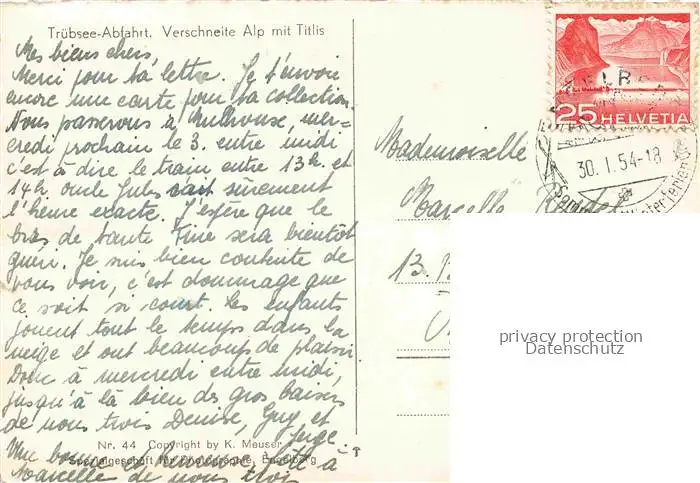 Trübsee-Abfahrt. Verschneite Alp mit Titlis
Mes biens chers,
Merci pour ta lettre. Je t'envoie
encore une carte pour ta collection.
Nous passerons à Mulhouse, mer-
credi prochain le 3. entre midi
c'est à dire le train entre 13h. et
14h. oncle Jules sait sûrement
l'heure exacte. J'espère que le
bras de tante Fine sera bientôt
guéri. Je suis bien contente de
vous voir, c'est dommage que
ce soit si court. Les enfants
jouent tout le temps dans la
neige et ont beaucoup de plaisir.
Donc à mercredi entre midi,
jusqu'à là bien des gros baisers
de nous trois Denise, Guy et
Serge.
Nr. 44 Copyright by K. Meuser
Spezialgeschäft für Photographie, Engelberg
Une bonne
Marcelle de nous trois
HELVETIA
25
30.I.54-18
Mademoiselle
Marcelle
13.
privacy protection
Datenschutz